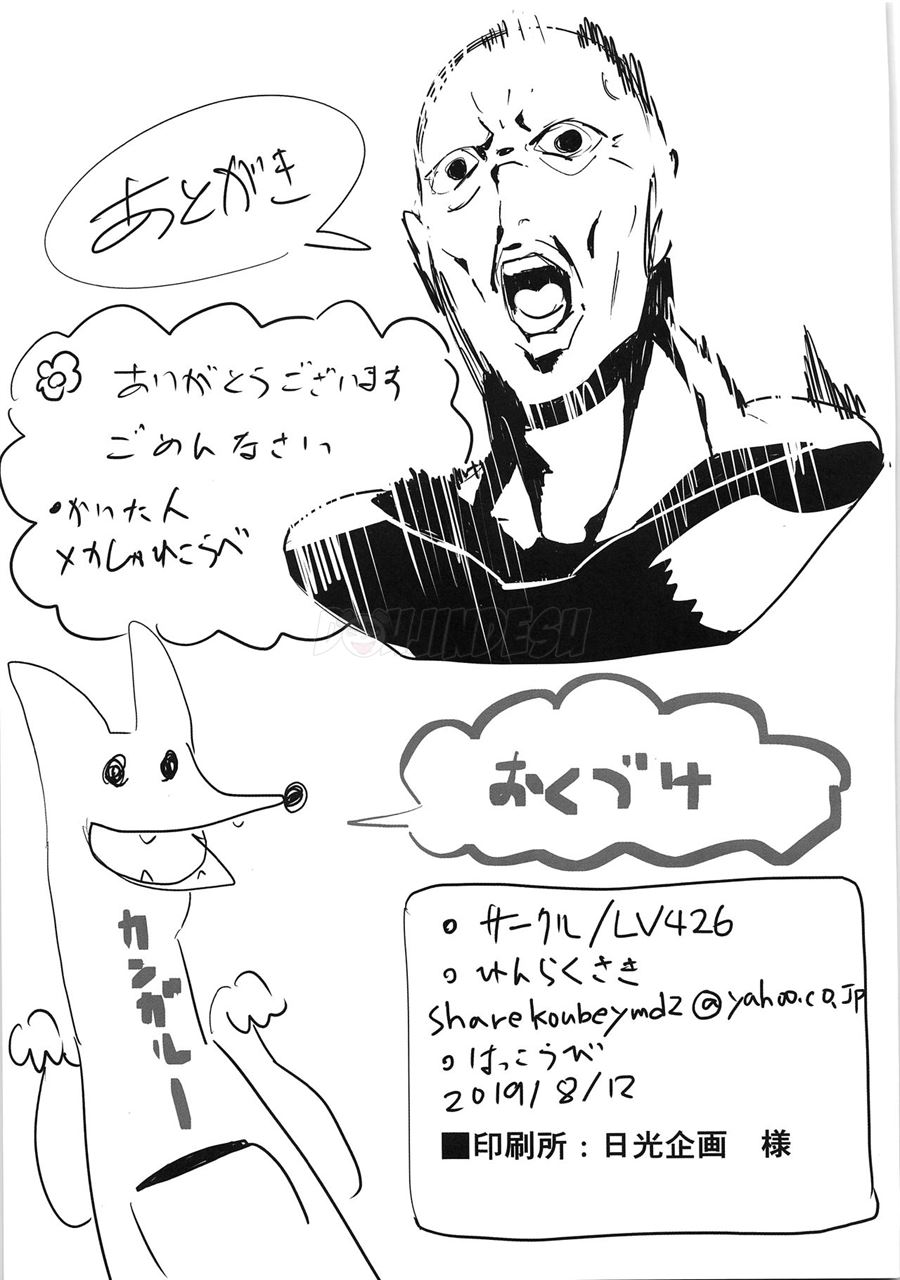 あとがき
ありがとうございます
ごめんなさいっ
•かいた人
メカしゃれこうべ
DOUJINDESU
おくづけ
カンガルー
○ サークル/LV426
○ れんらくさき
sharekoubeymd2@yahoo.co.jp
○ はっこうび
2019/8/12
■印刷所：日光企画　様